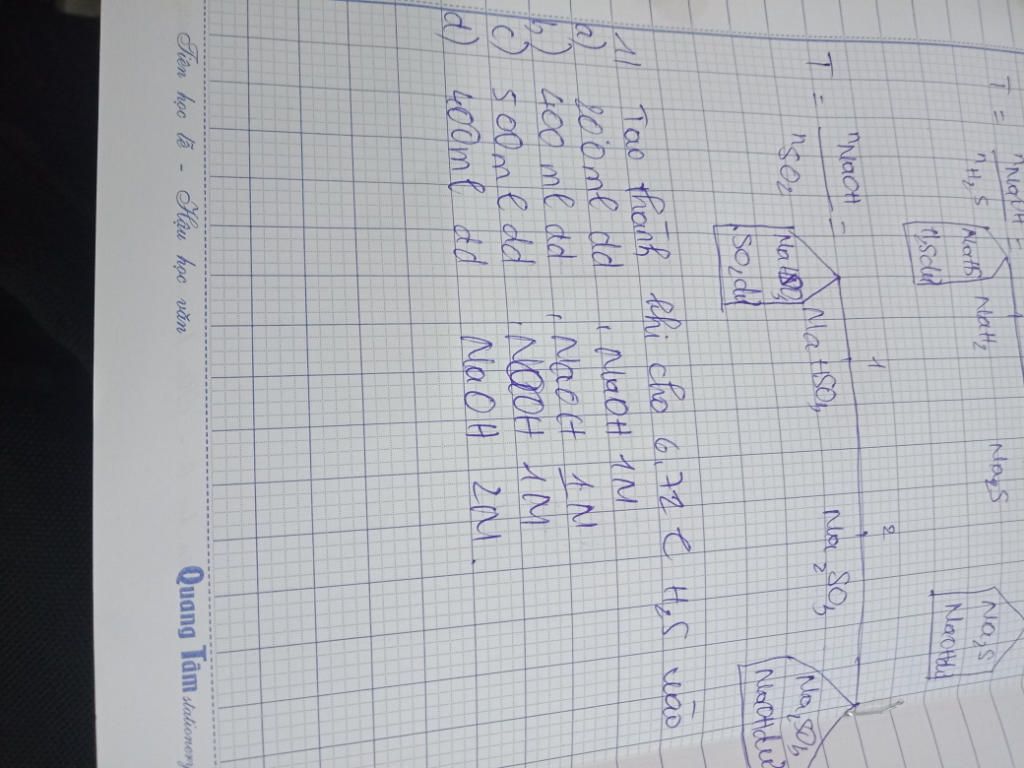 T = nNaOH / nH₂S =
1
NaHS
H₂S dư
NaH₂
Na₂S
Na₂S
NaOH dư
T = nNaOH / nSO₂ =
1 2
NaHSO₃
SO₂ dư
NaHSO₃
Na₂SO₃
Na₂SO₃
NaOH dư
1/ Tạo thành khi cho 6,72 l H₂S vào
a) 200ml dd, NaOH 1M
b) 400 ml dd, NaOH 1M
c) 500ml dd, NaOH 1M
d) 400ml dd NaOH 2M.
Tiên học lễ - Hậu học văn
Quang Tâm stationery